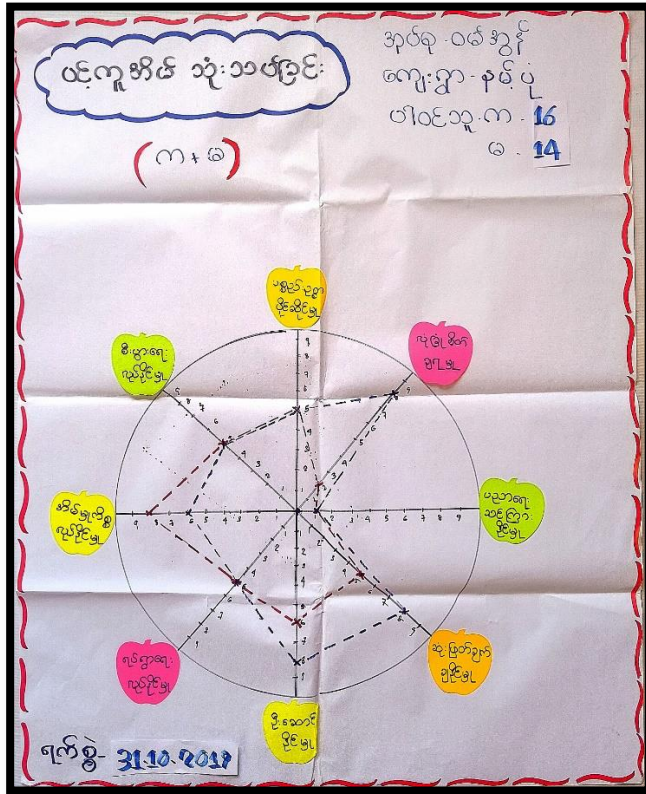 ပင့်ကူအိမ် သုံးသပ်ခြင်း
(က + မ)
အုပ်စု - ဝမ်အွန်
ကျေးရွာ - နမ့်ပုံ
ပါဝင်သူ - က - 16
မ - 14
ပစ္စည်းဥစ္စာ
ပိုင်ဆိုင်မှု
လုံခြုံစိတ်
ချရမှု
ပညာရေး
သင်ကြား
နိုင်မှု
ဆုံးဖြတ်ချက်
ချနိုင်မှု
ဦးဆောင်
နိုင်မှု
ရပ်ရွာရေး
လုပ်နိုင်မှု
အိမ်မှုကိစ္စ
လုပ်နိုင်မှု
စီးပွားရေး
လုပ်နိုင်မှု
ရက်စွဲ - 31.10.2019